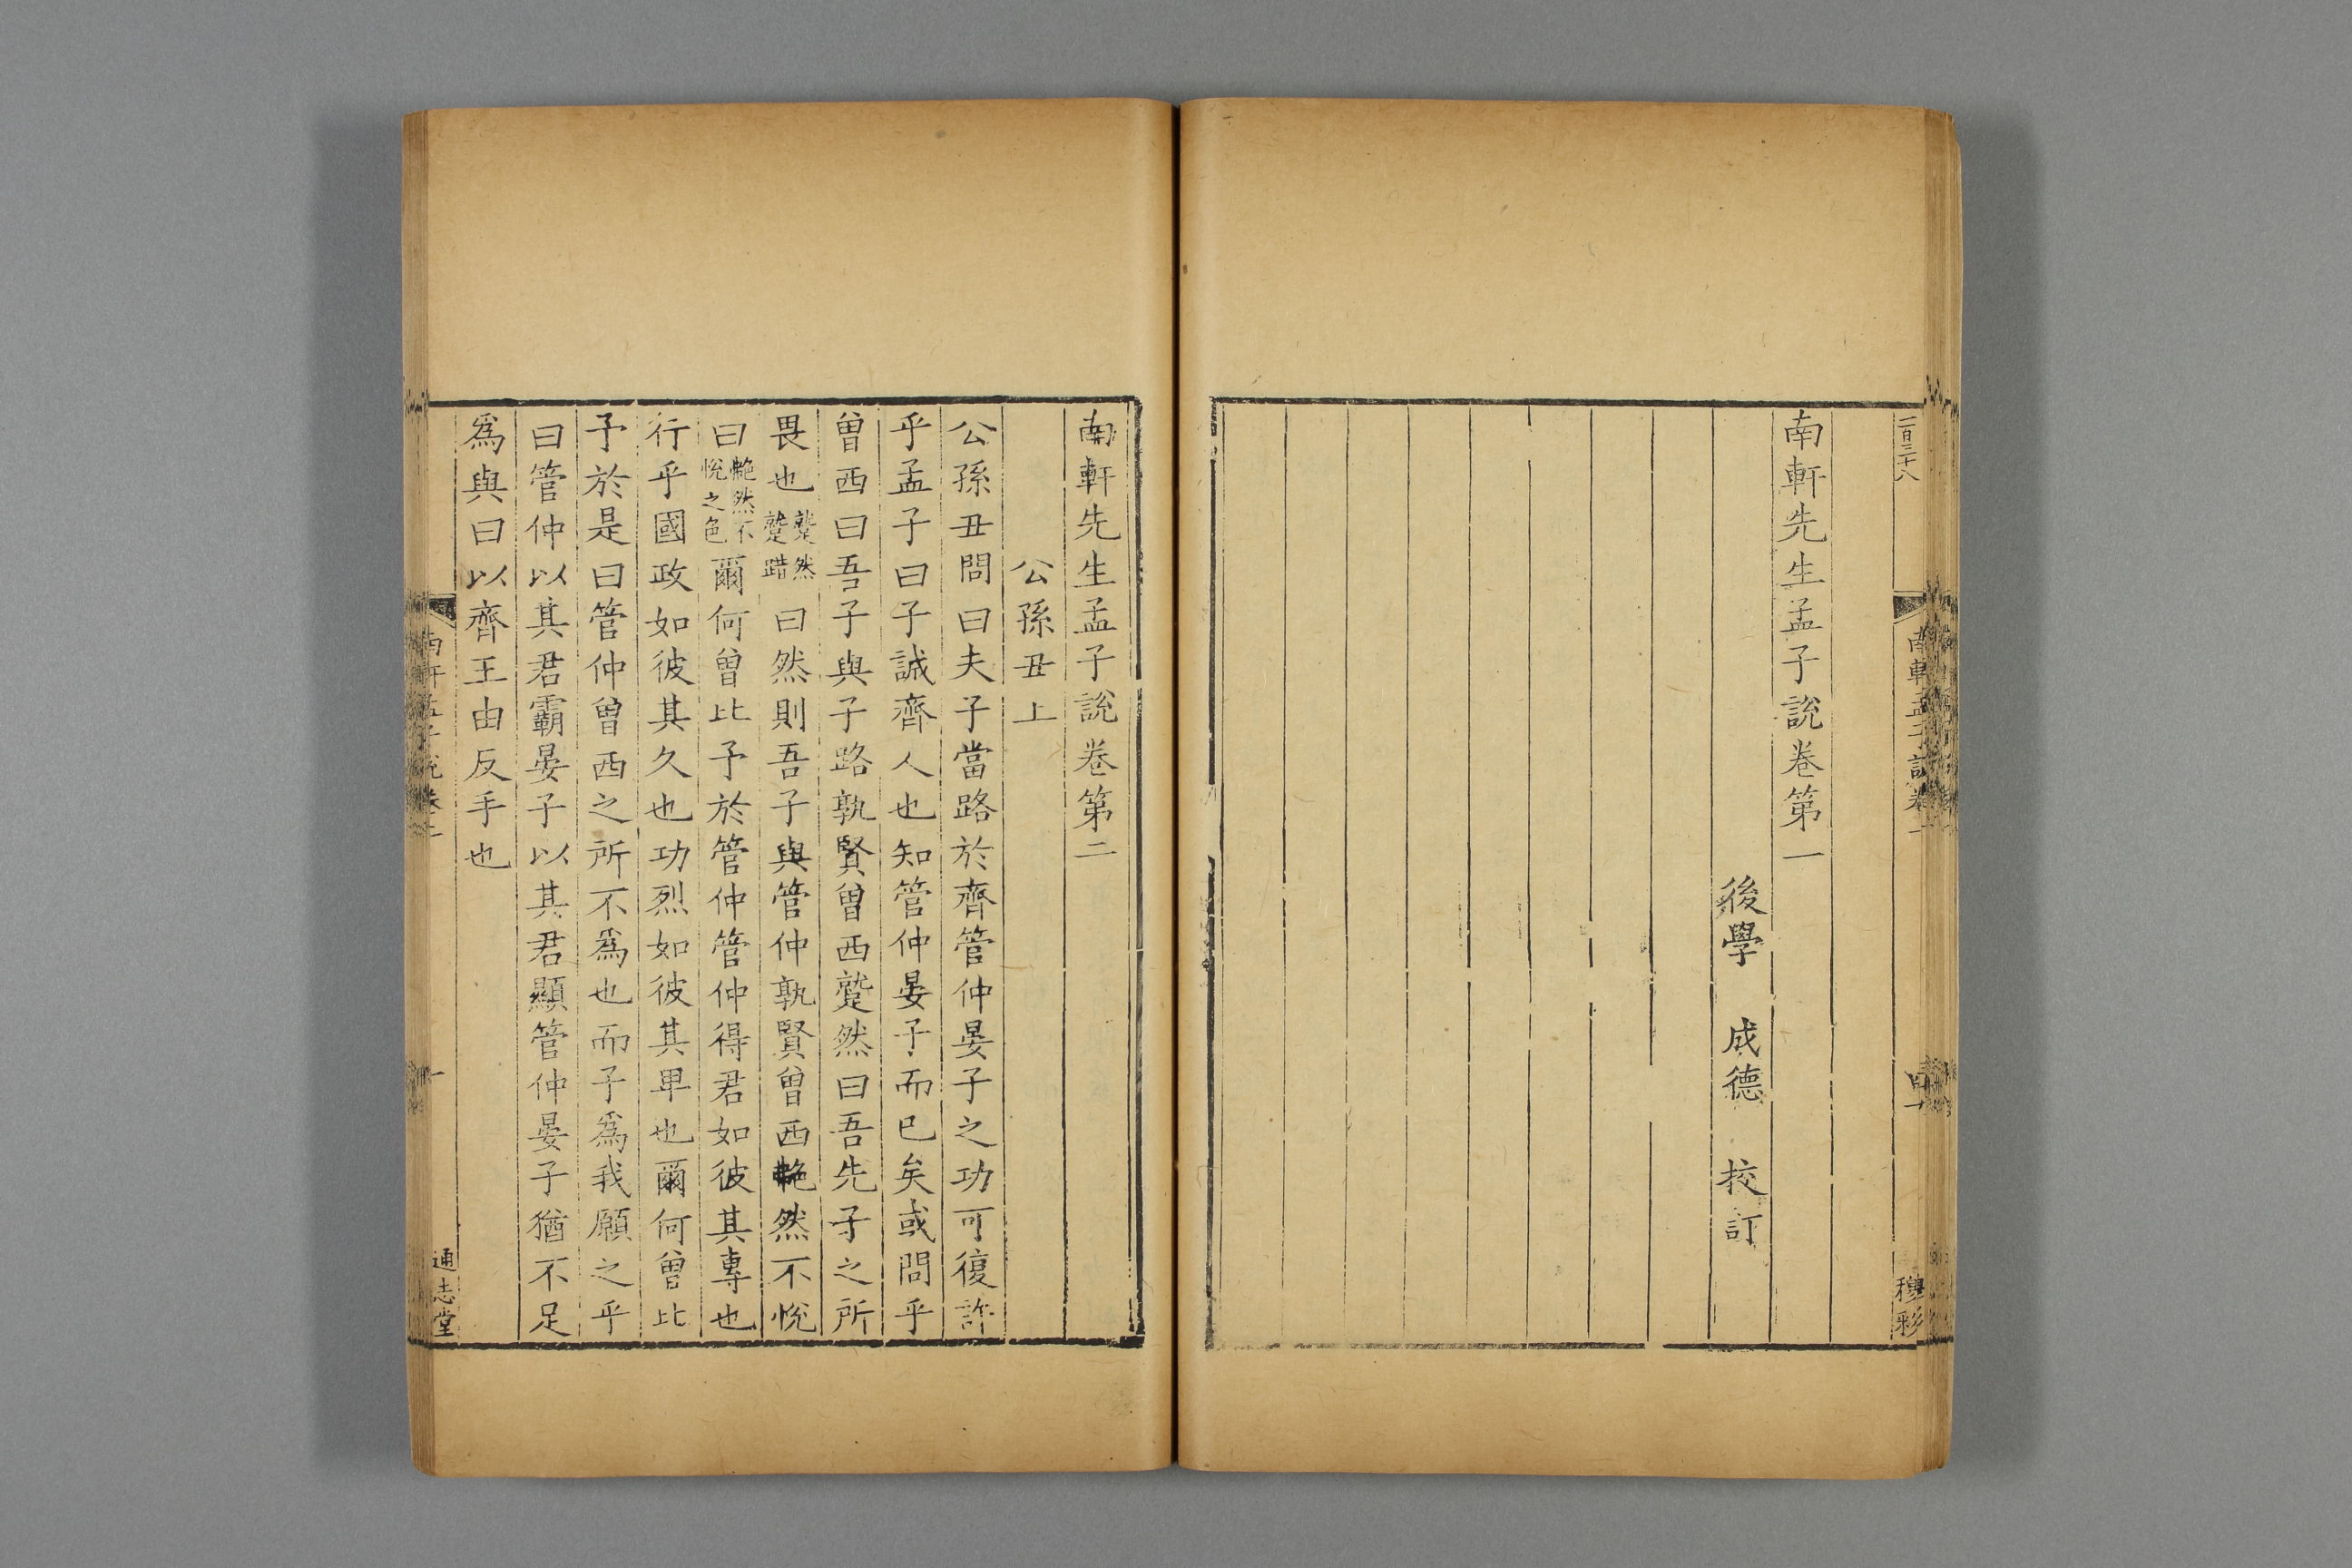 一百三十八
南軒孟子說卷一
穆彩
南軒先生孟子說卷第一
後學 成德 校訂
南軒先生孟子說卷第二
公孫丑上
公孫丑問曰夫子當路於齊管仲晏子之功可復許
乎孟子曰子誠齊人也知管仲晏子而已矣或問乎
曾西曰吾子與子路孰賢曾西蹵然曰吾先子之所
畏也蹵然蹵踖曰然則吾子與管仲孰賢曾西艴然不悅
曰艴然不悅之色爾何曾比予於管仲管仲得君如彼其專也
行乎國政如彼其久也功烈如彼其卑也爾何曾比
予於是曰管仲曾西之所不為也而子為我願之乎
曰管仲以其君霸晏子以其君顯管仲晏子猶不足
為與曰以齊王由反手也
南軒孟子說卷二
一
通志堂